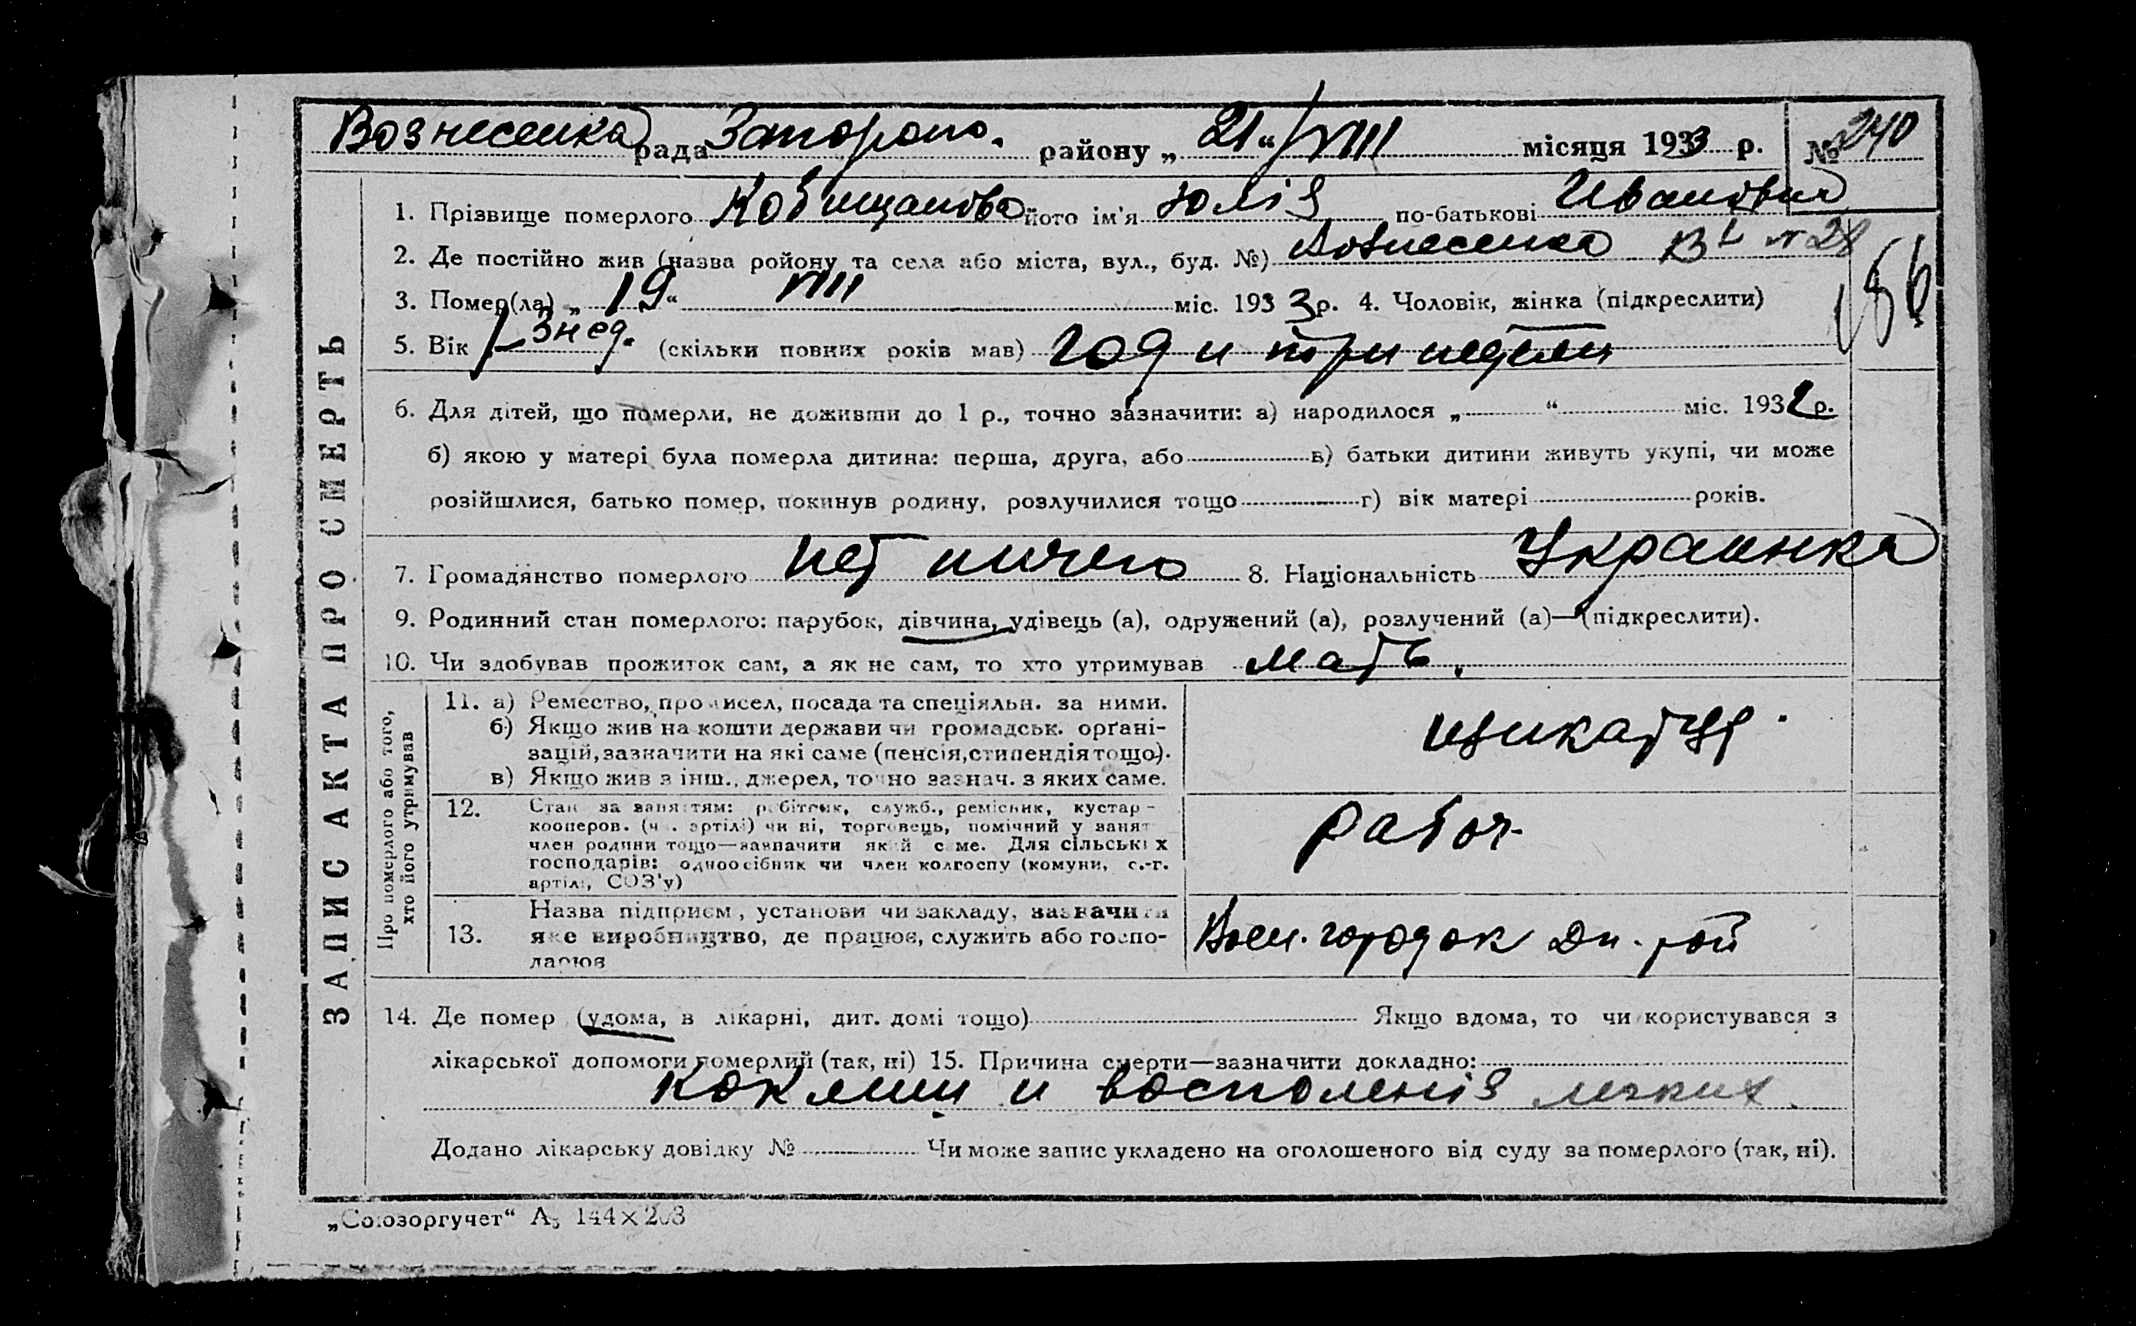 Вознесенка рада Запорож. району „ 21 “ VIII місяця 1933 р. № 240
1. Прізвище померлого Кобищанова його ім'я Юлія по-батькові Ивановна
2. Де постійно жив (назва ройону та села або міста, вул., буд. №) Вознесенка № 28
3. Помер(ла) „ 19 “ VIII міс. 1933 р. 4. Чоловік, жінка (підкреслити)
186
5. Вік 1 – 3 нед. (скільки повних років мав) год и три недели
6. Для дітей, що померли, не доживши до 1 р., точно зазначити: а) народилося „ “ міс. 1932 р.
б) якою у матері була померла дитина: перша, друга, або в) батьки дитини живуть укупі, чи може
розійшлися, батько помер, покинув родину, розлучилися тощо г) вік матері років.
7. Громадянство померлого нет ничего 8. Національність Украинка
9. Родинний стан померлого: парубок, дівчина, удівець (а), одружений (а), розлучений (а)—(підкреслити).
10. Чи здобував прожиток сам, а як не сам, то хто утримував мать.
ЗАПИС АКТА ПРО СМЕРТЬ
Про померлого або того, хто його утримував
11. а) Ремество, промисел, посада та спеціяльн. за ними.
б) Якщо жив на кошти держави чи громадськ. орґані-
зацій, зазначити на які саме (пенсія, стипендія тощо).
в) Якщо жив з інш. джерел, точно зазнач. з яких саме.
12. Стан за заняттям: робітник, служб., ремісник, кустар-
кооперов. (ч. артілі) чи ні, торговець, помічний у занят
член родини тощо—зазначити який саме. Для сільських
господарів: одноосібник чи член колгоспу (комуни, с.-г.
артілі, СОЗ'у)
рабоч.
13. Назва підприєм., установи чи закладу, зазначити
яке виробництво, де працюв, служить або госпо-
дарюв
Воен. городок
14. Де помер (удома, в лікарні, дит. домі тощо) Якщо вдома, то чи користувався з
лікарської допомоги померлий (так, ні) 15. Причина смерти—зазначити докладно:
коклиш и восполенія легких
Додано лікарську довідку № Чи може запис укладено на оголошеного від суду за померлого (так, ні).
„Союзоргучет“ А₅ 144×203